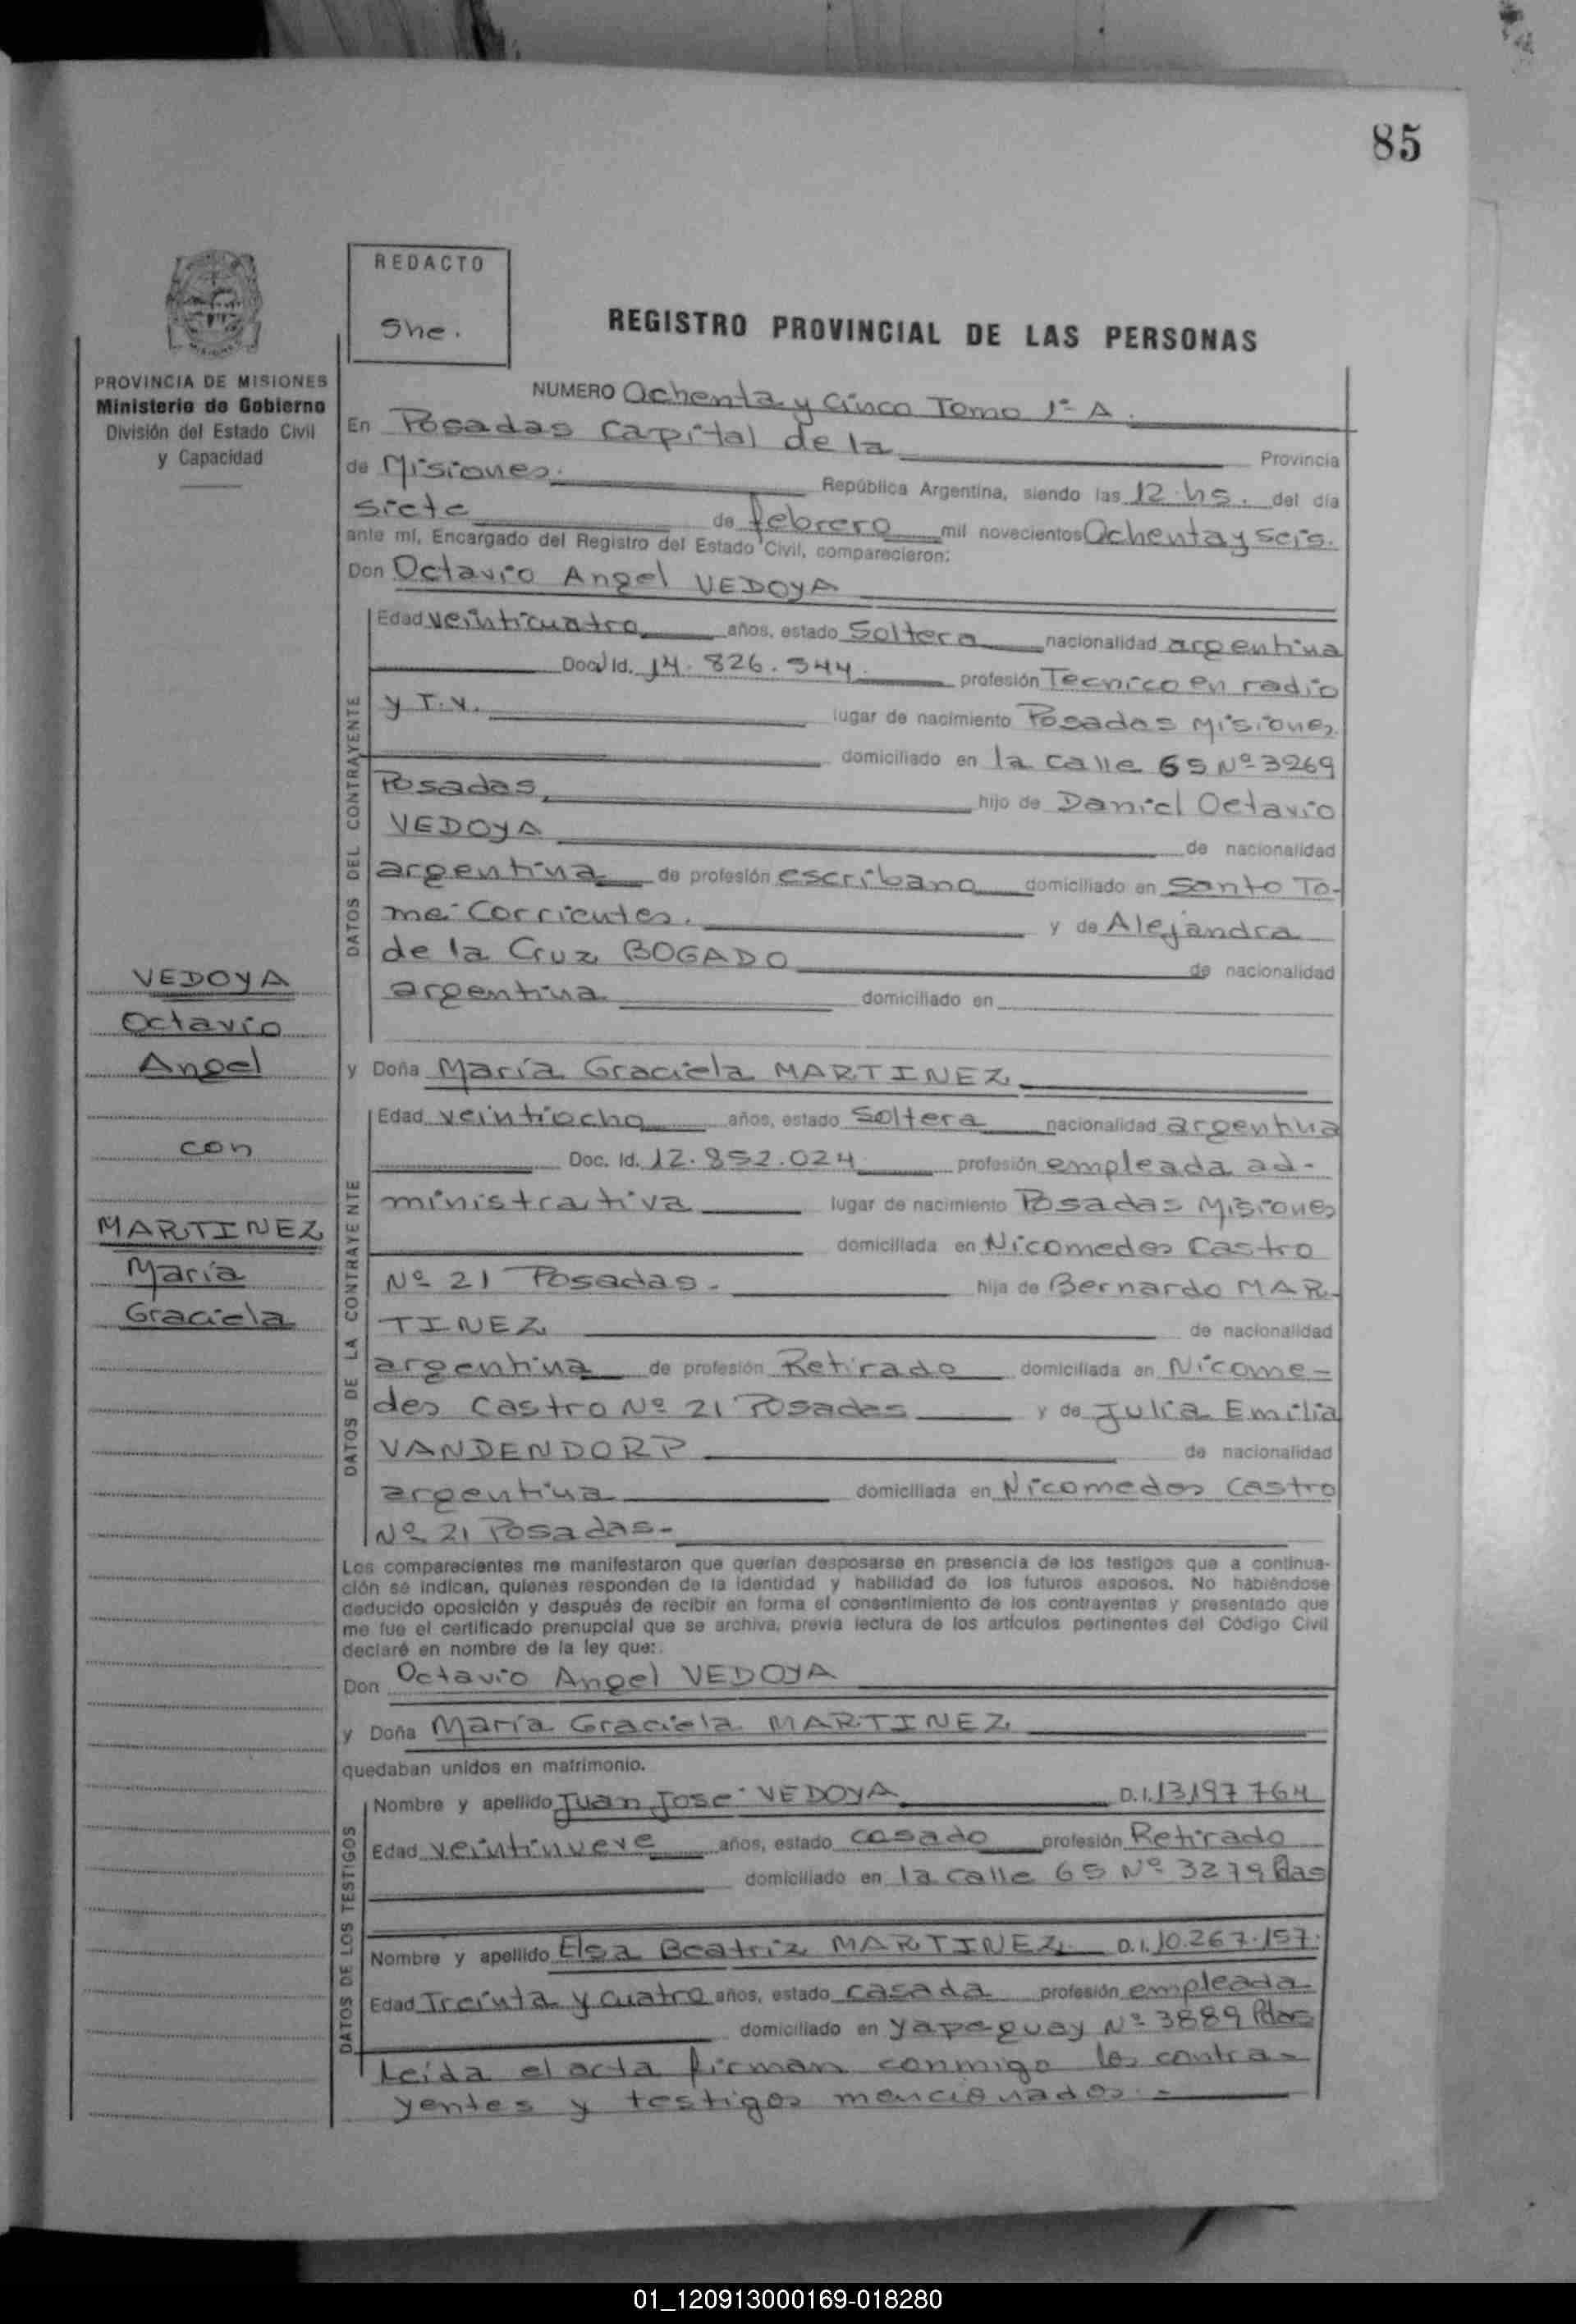 85
REDACTO
She.
REGISTRO PROVINCIAL DE LAS PERSONAS
PROVINCIA DE MISIONES
Ministerio de Gobierno
División del Estado Civil
y Capacidad
NUMERO Ochenta y Cinco Tomo 1º A.
En Posadas Capital de la Provincia
de Misiones. República Argentina, siendo las 12 hs. del día
siete de febrero mil novecientos Ochenta y seis.
ante mí, Encargado del Registro del Estado Civil, comparecieron:
Don Octavio Angel VEDOYA
DATOS DEL CONTRAYENTE
Edad veinticuatro años, estado Soltero nacionalidad argentina
Doc. Id. 14.826.544 profesión Tecnico en radio
y T.V. lugar de nacimiento Posadas Misiones
domiciliado en la calle 65 Nº 3269
Posadas hijo de Daniel Octavio
VEDOYA de nacionalidad
argentina de profesión escribano domiciliado en Santo To-
mé Corrientes. y de Alejandra
de la Cruz BOGADO de nacionalidad
argentina domiciliado en
VEDOYA
Octavio
Angel
con
MARTINEZ
María
Graciela
y Doña María Graciela MARTINEZ
DATOS DE LA CONTRAYENTE
Edad veintiocho años, estado Soltera nacionalidad argentina
Doc. Id. 12.852.024 profesión empleada ad-
ministrativa lugar de nacimiento Posadas Misiones
domiciliada en Nicomedes Castro
Nº 21 Posadas. hija de Bernardo MAR-
TINEZ de nacionalidad
argentina de profesión Retirado domiciliada en Nicome-
des Castro Nº 21 Posadas y de Julia Emilia
VANDENDORP de nacionalidad
argentina domiciliada en Nicomedes Castro
Nº 21 Posadas-
Los comparecientes me manifestaron que querían desposarse en presencia de los testigos que a continua-
ción se indican, quienes responden de la identidad y habilidad de los futuros esposos. No habiéndose
deducido oposición y después de recibir en forma el consentimiento de los contrayentes y presentado que
me fue el certificado prenupcial que se archiva, previa lectura de los artículos pertinentes del Código Civil
declaré en nombre de la ley que:
Don Octavio Angel VEDOYA
y Doña María Graciela MARTINEZ
quedaban unidos en matrimonio.
DATOS DE LOS TESTIGOS
Nombre y apellido Juan José VEDOYA D.I. 13197764
Edad veintinueve años, estado casado profesión Retirado
domiciliado en la calle 65 Nº 3279 Pdas
Nombre y apellido Elsa Beatriz MARTINEZ D.I. 10.267.157.
Edad Treinta y cuatro años, estado casada profesión empleada
domiciliado en Yapeguay Nº 3889 Pdas
Leída el acta firman conmigo los contra-
yentes y testigos mencionados.-
01_120913000169-018280